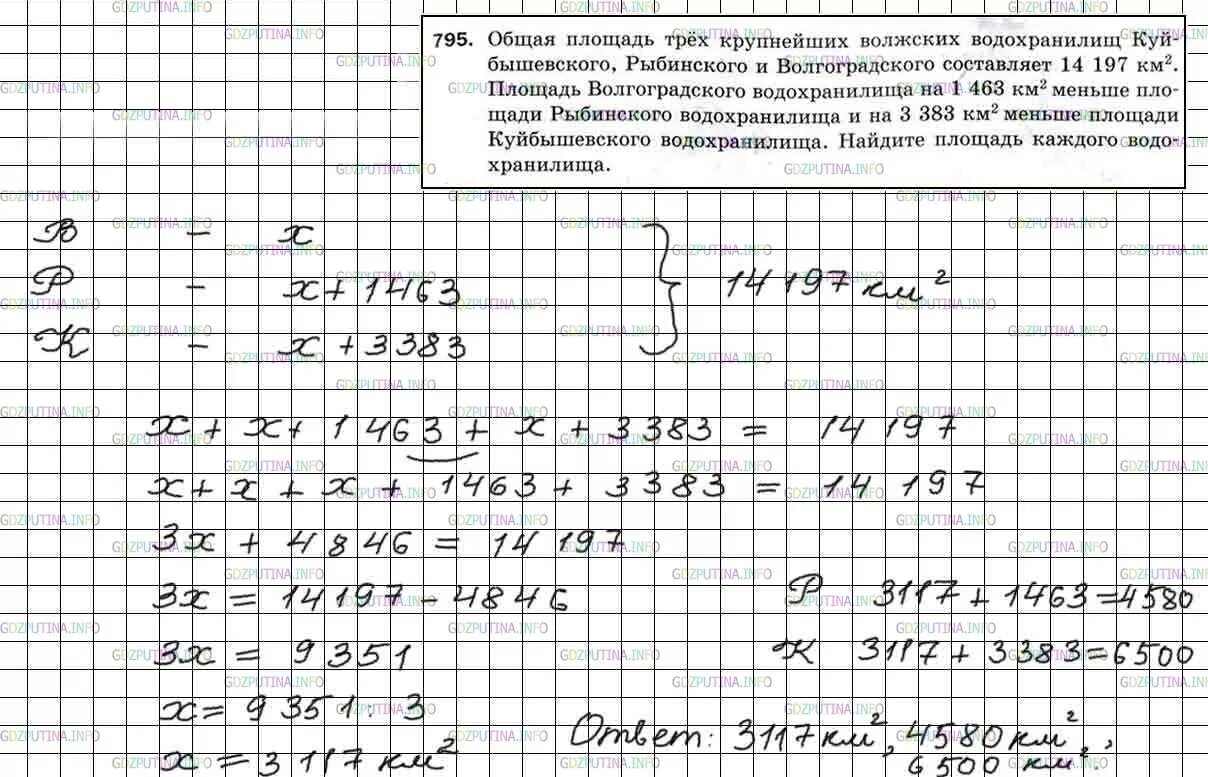 795. Общая площадь трёх крупнейших волжских водохранилищ Куй-
бышевского, Рыбинского и Волгоградского составляет 14 197 км².
Площадь Волгоградского водохранилища на 1 463 км² меньше пло-
щади Рыбинского водохранилища и на 3 383 км² меньше площади
Куйбышевского водохранилища. Найдите площадь каждого водо-
хранилища.
В – х
Р – х + 1463
К – х + 3383
14 197 км²
х + х + 1463 + х + 3383 = 14 197
х + х + х + 1463 + 3383 = 14 197
3х + 4846 = 14 197
3х = 14197 – 4846
3х = 9351
х = 9351 : 3
х = 3117 км²
Р 3117 + 1463 = 4580
К 3117 + 3383 = 6500
Ответ: 3117 км², 4580 км²,
6500 км².
GDZPUTINA.INFO